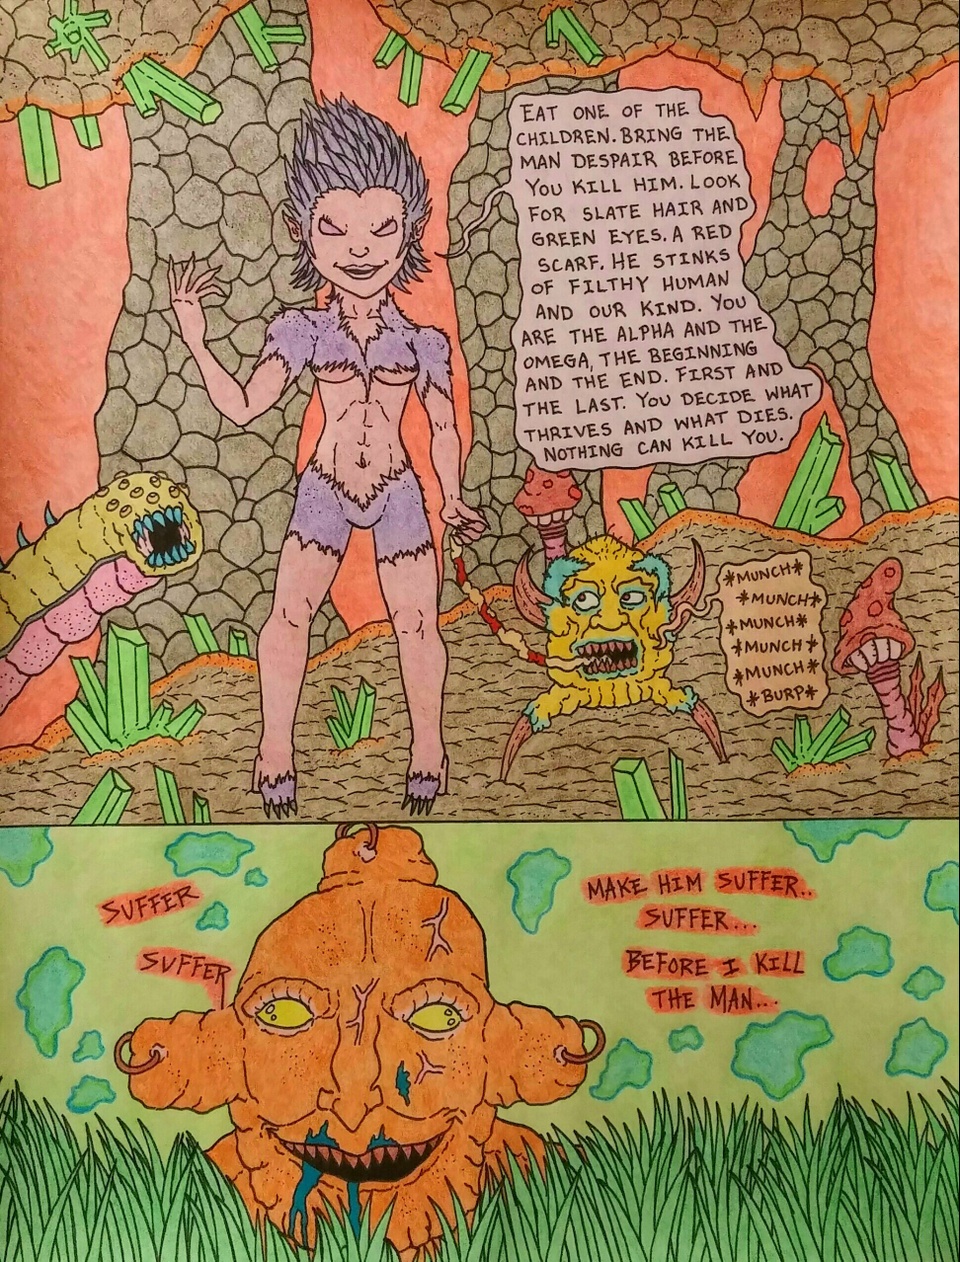 EAT ONE OF THE
CHILDREN. BRING THE
MAN DESPAIR BEFORE
YOU KILL HIM. LOOK
FOR SLATE HAIR AND
GREEN EYES. A RED
SCARF. HE STINKS
OF FILTHY HUMAN
AND OUR KIND. YOU
ARE THE ALPHA AND THE
OMEGA, THE BEGINNING
AND THE END. FIRST AND
THE LAST. YOU DECIDE WHAT
THRIVES AND WHAT DIES.
NOTHING CAN KILL YOU.
*MUNCH*
*MUNCH*
*MUNCH*
*MUNCH*
*MUNCH*
*BURP*
SUFFER
SUFFER
MAKE HIM SUFFER..
SUFFER...
BEFORE I KILL
THE MAN...